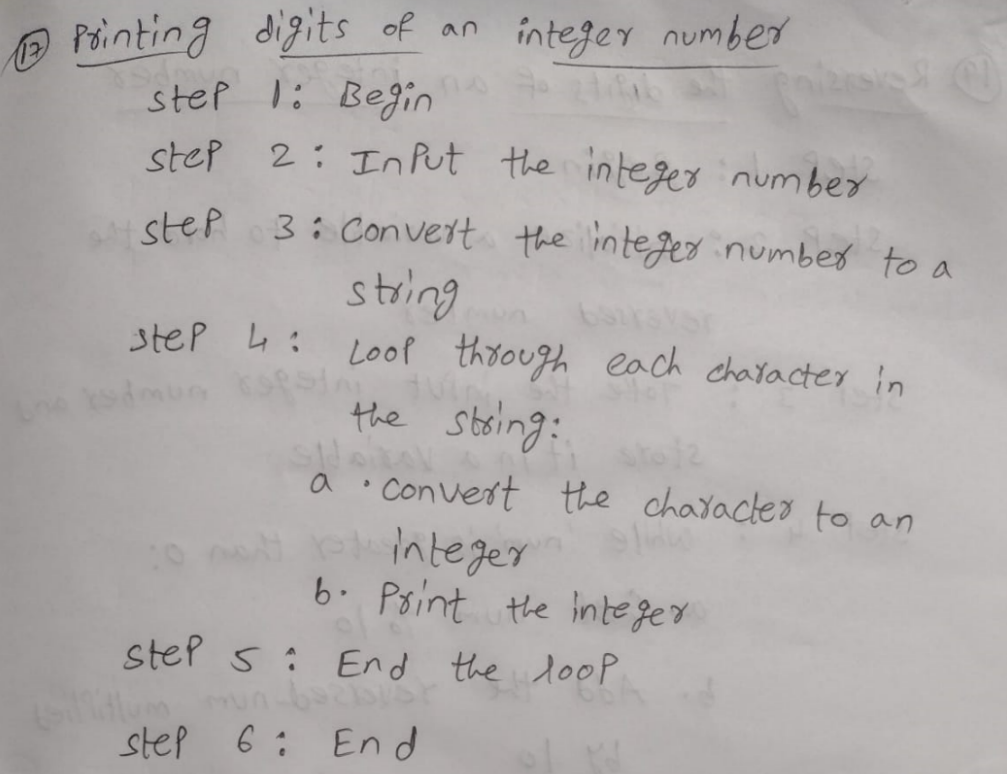 17 Printing digits of an integer number
step 1: Begin
step 2: Input the integer number
step 3: Convert the integer number to a
string
step 4: Loop through each character in
the string:
a. convert the character to an
integer
b. Print the integer
step 5: End the loop
step 6: End